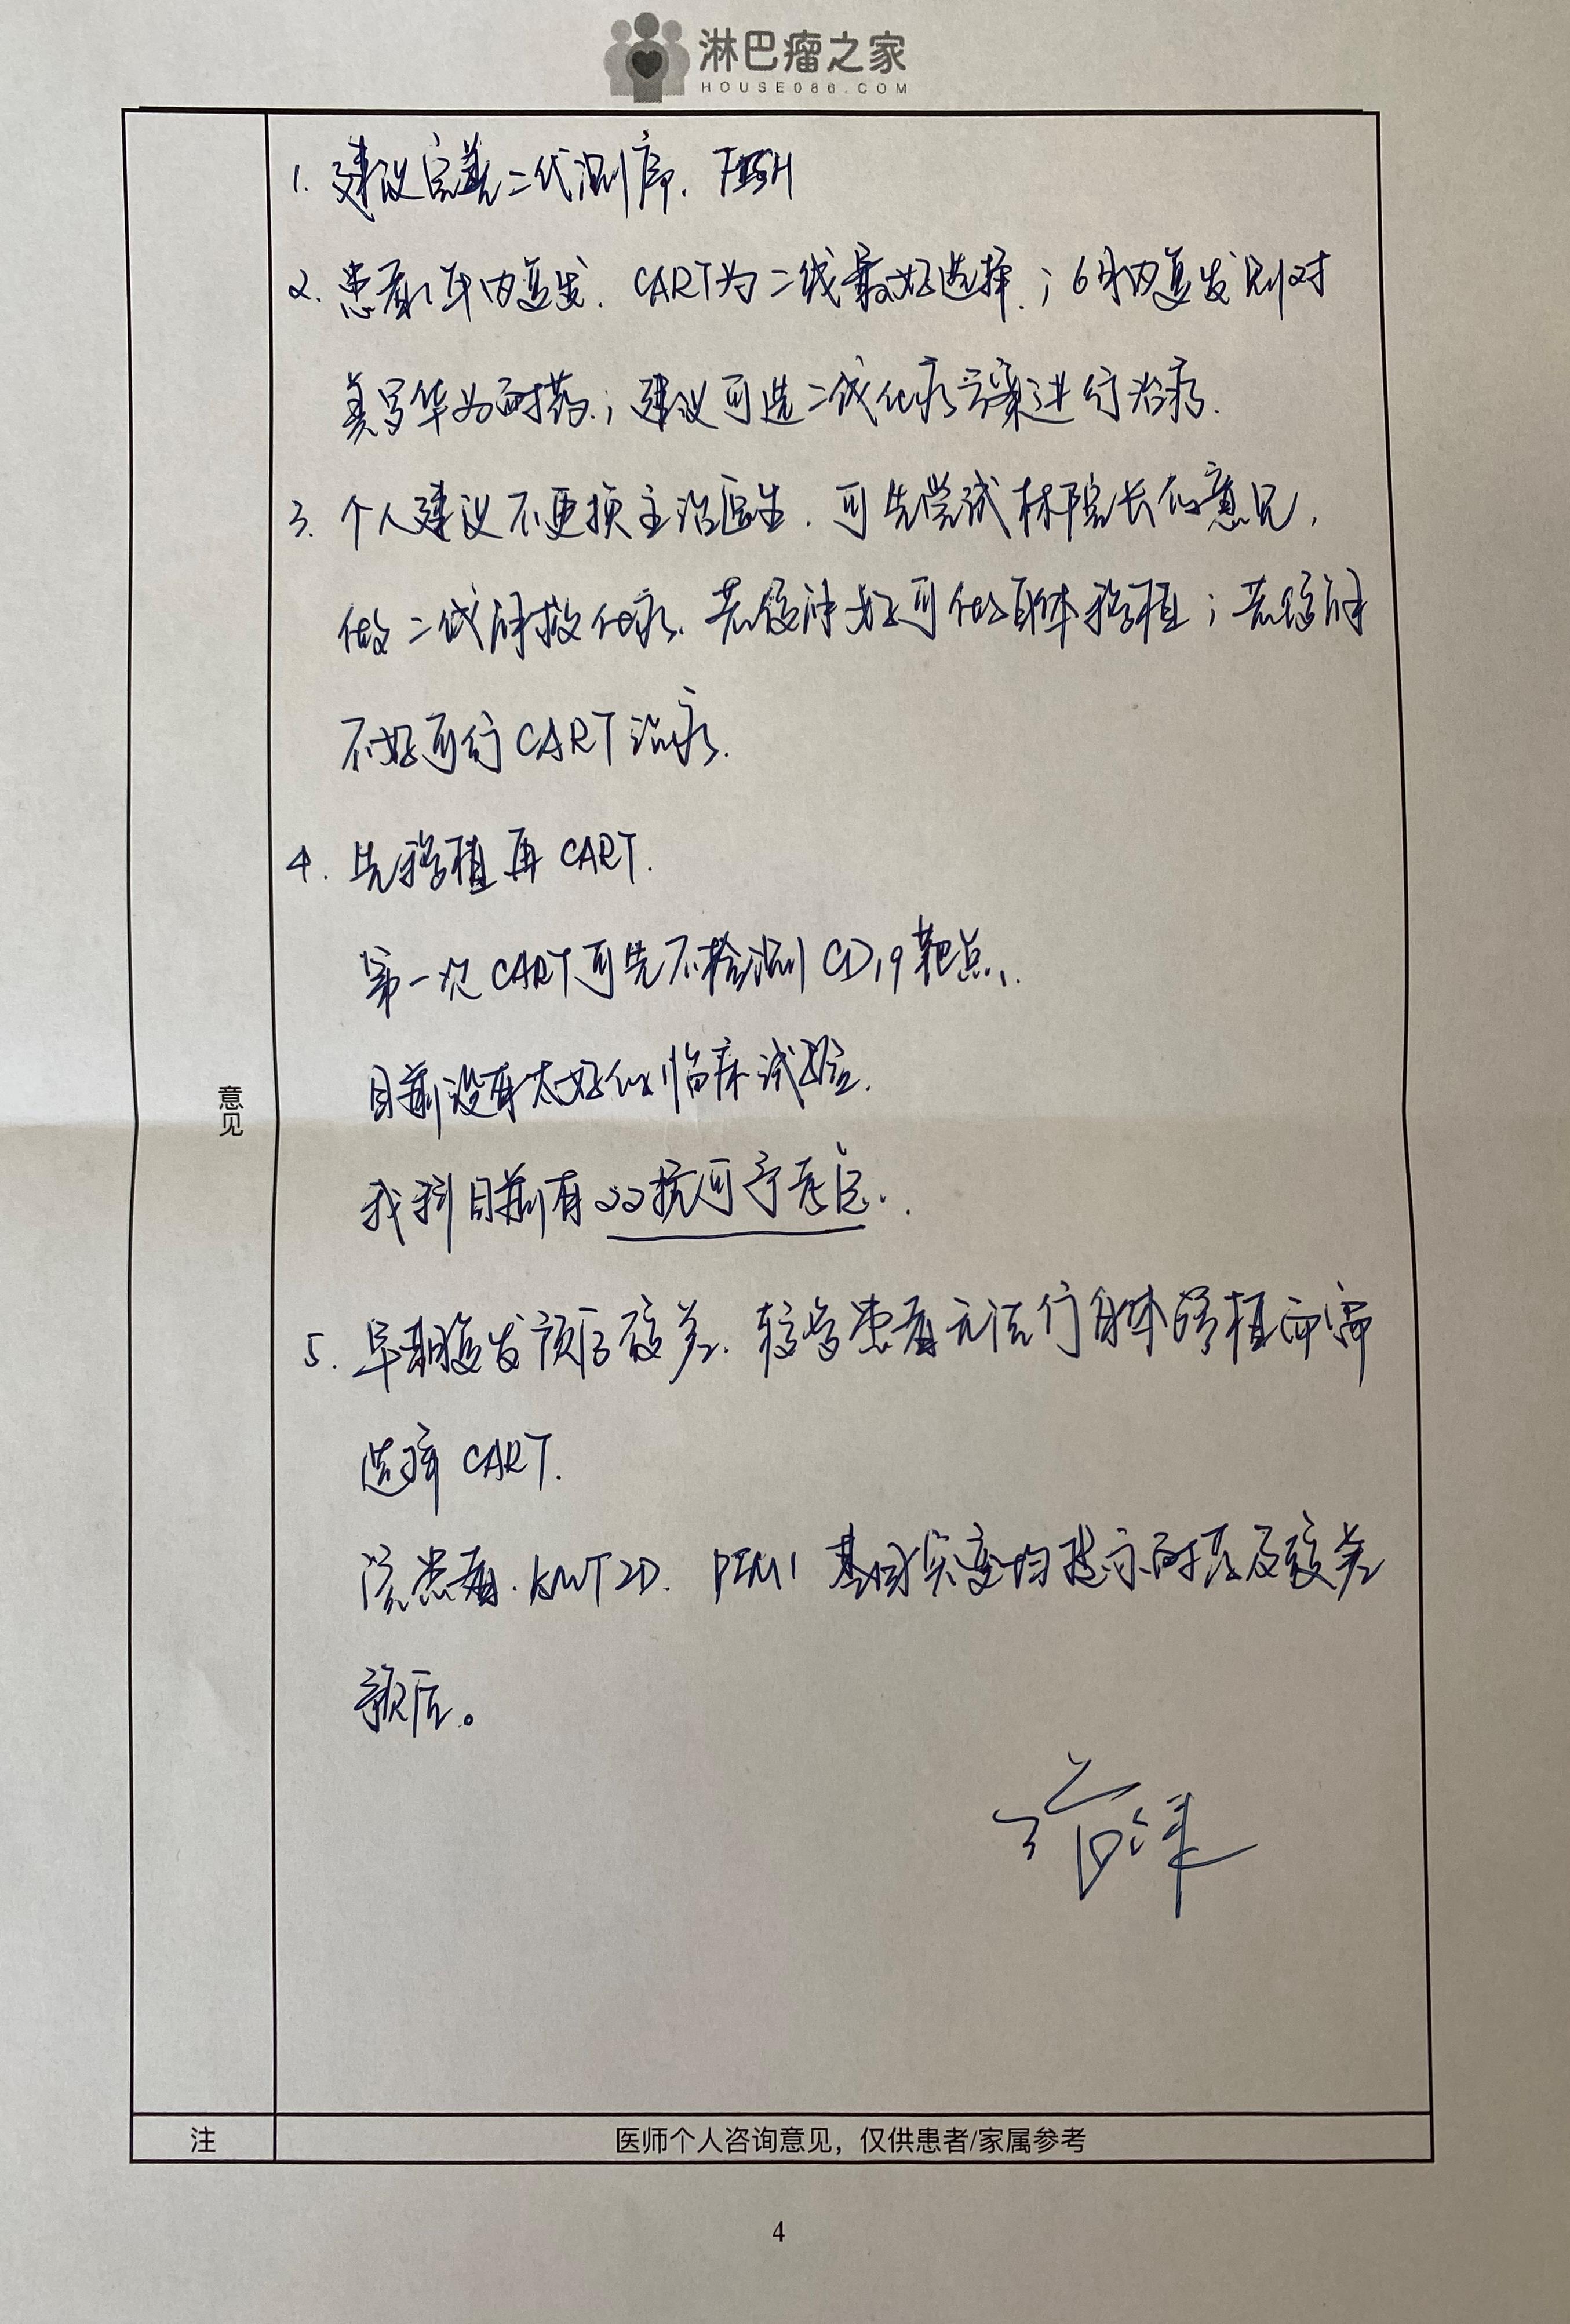 淋巴瘤之家
HOUSE086.COM
1. 建议完善二代测序. FISH
2. 患者1年内复发. CART为二线最好选择.; 6月内复发则对
美罗华为耐药.; 建议可选二线化疗方案进行治疗.
3. 个人建议不更换主治医生. 可先尝试林院长的意见,
做二线解救化疗. 若缓解好可做自体移植; 若缓解
不好可行CART治疗.
4. 先移植再CART.
第一次CART可先不检测CD19靶点.
目前没有太好的临床试验.
我科目前有双抗可予考虑.
5. 早期复发预后较差. 较多患者无法行自体移植而需
选择CART.
该患者. KMT2D. PIM1基因突变均提示耐药及较差
预后。
意见
注
医师个人咨询意见，仅供患者/家属参考
4